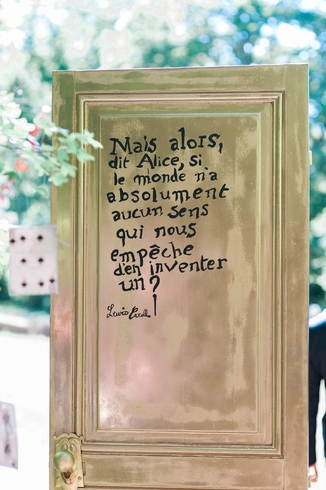 Mais alors,
dit Alice, si
le monde n'a
absolument
aucun sens
qui nous
empêche
d'en inventer
un?
Lewis